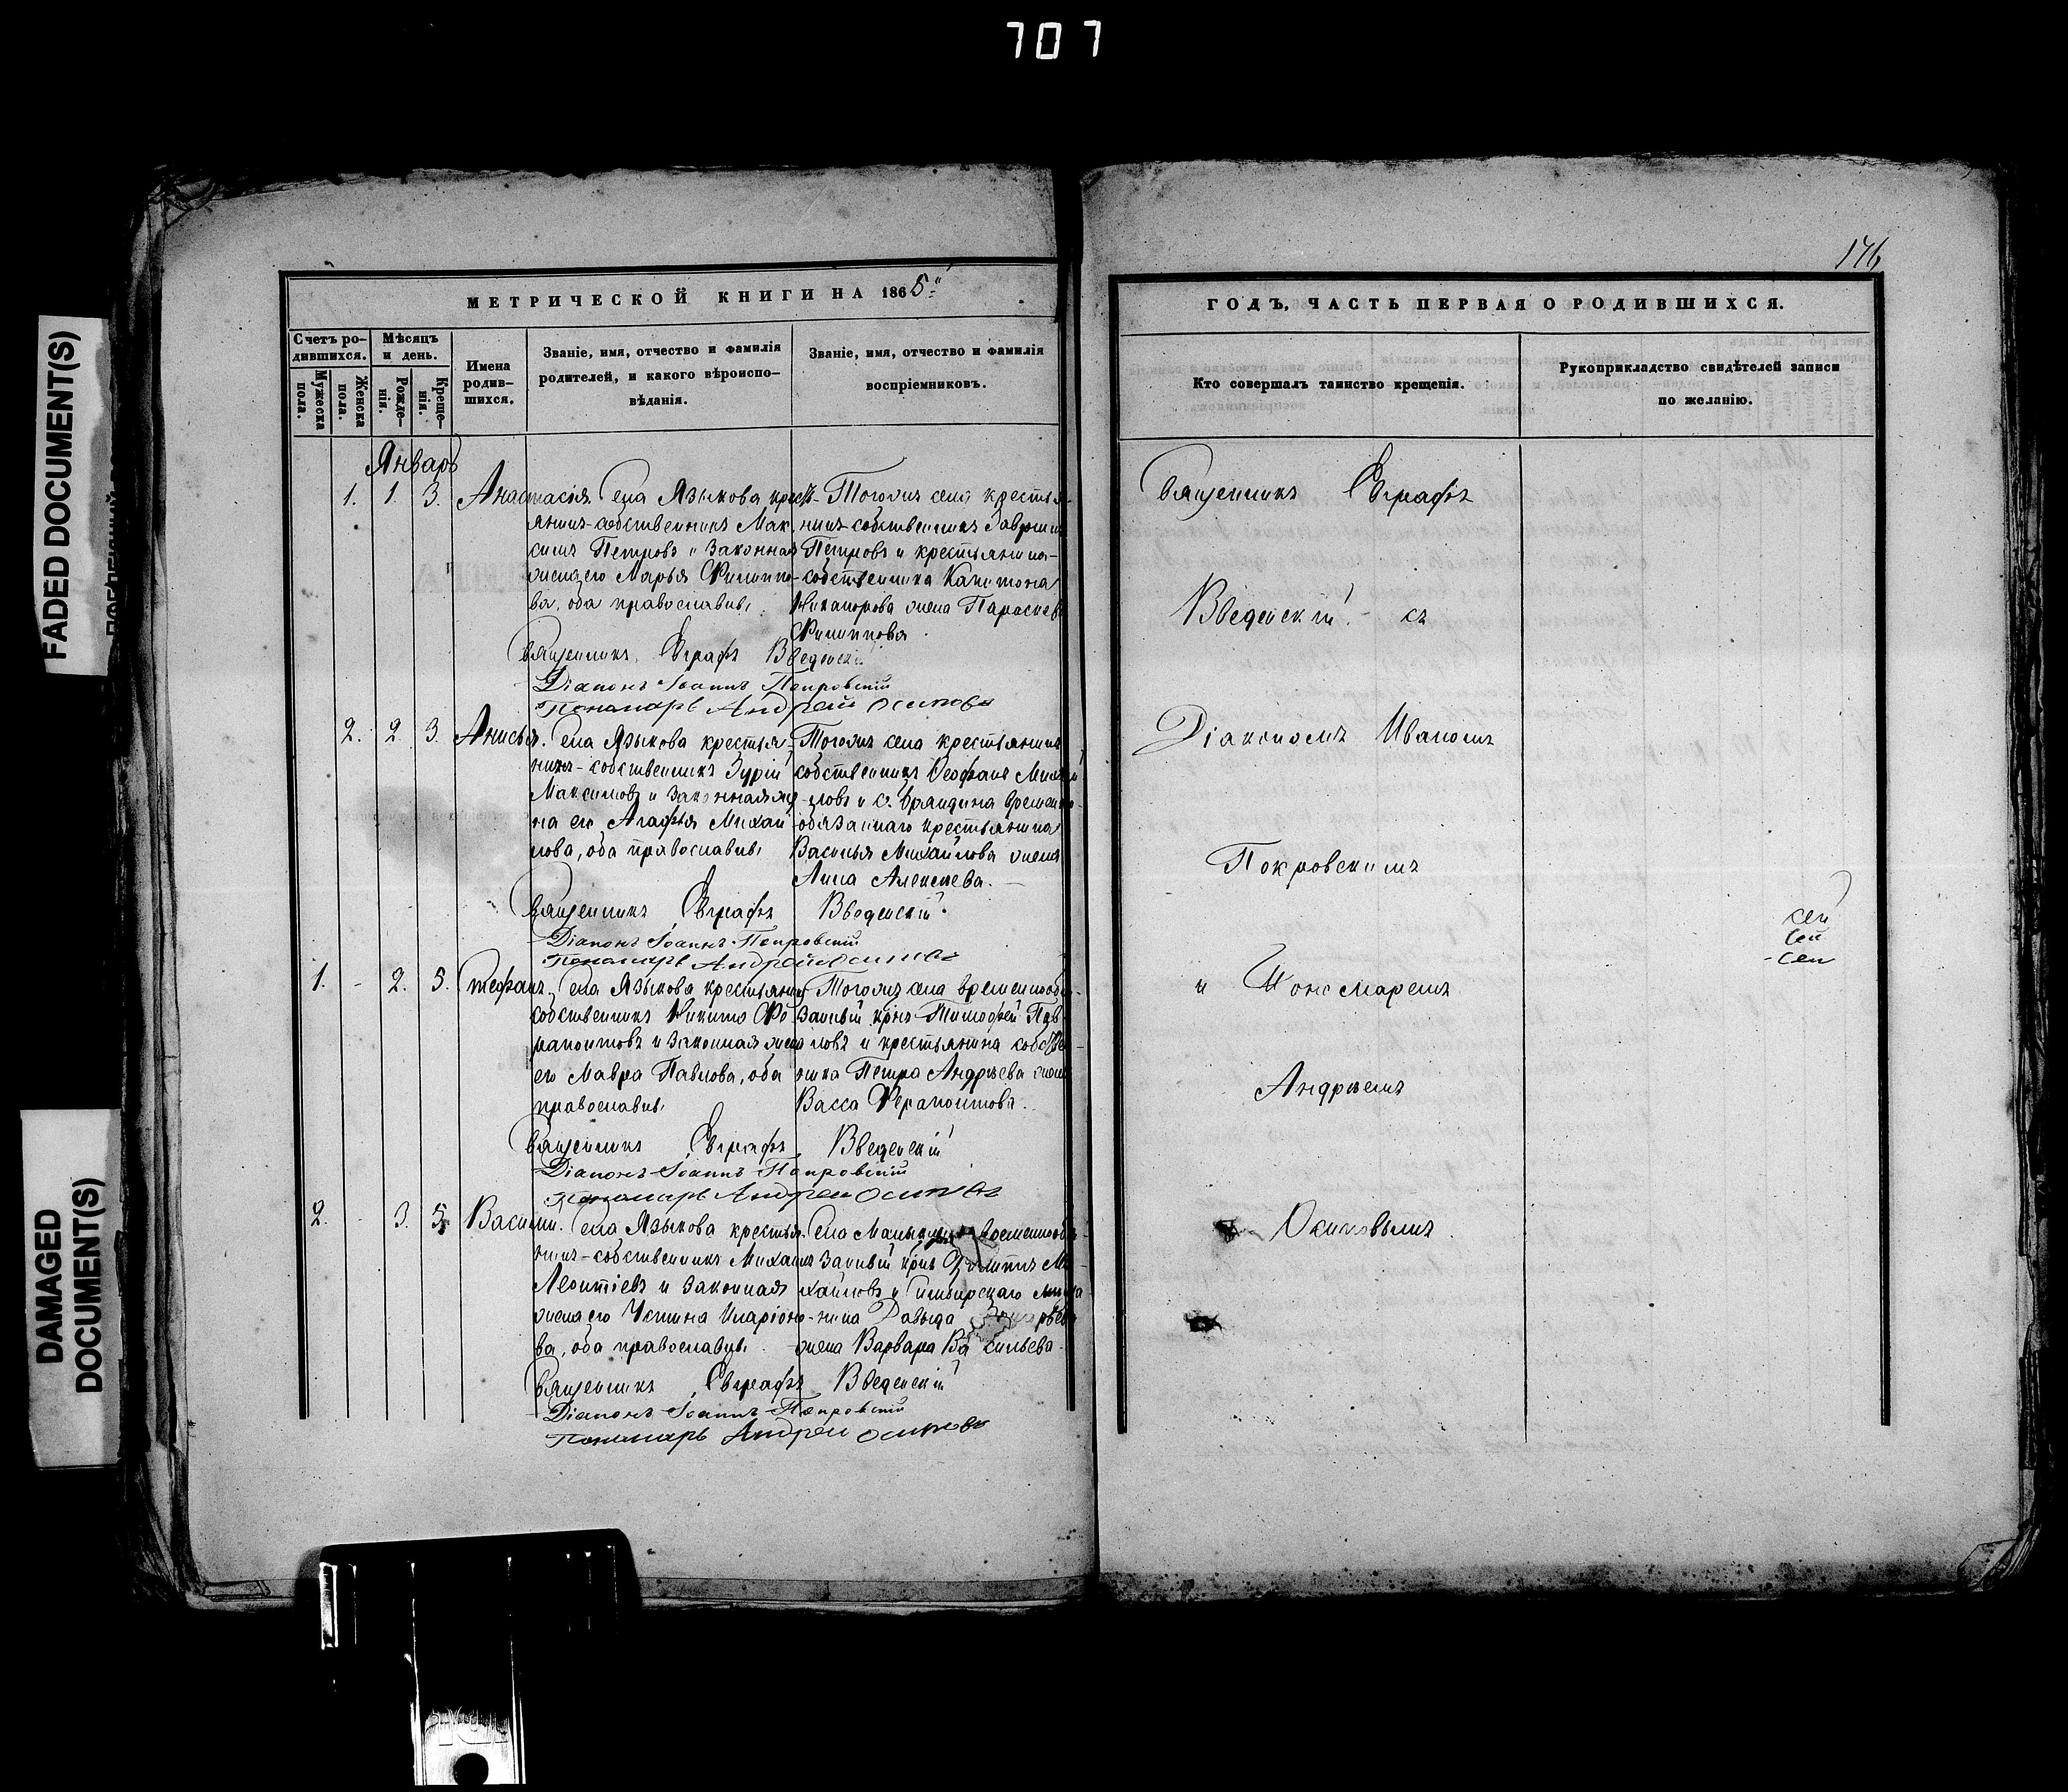 707
FADED DOCUMENT(S)
DAMAGED DOCUMENT(S)
176
МЕТРИЧЕСКОЙ КНИГИ НА 1865
Счетъ ро-
дившихся.
Мужеска пола.
Женска пола.
Мѣсяцъ
и день.
Рожде-
нія.
Креще-
нія.
Имена
родив-
шихся.
Званіе, имя, отчество и фамилія
родителей, и какого вѣроиспо-
вѣданія.
Званіе, имя, отчество и фамилія
воспріемниковъ.
Январь
1. 1. 3. Анастасія.
Села Языкова крестъ-
янинъ-собственникъ Мак-
симъ Петровъ и законная
жена его Марья Филиппо-
ва, оба православные
Тогожъ села крестья-
нинъ-собственникъ Гаврiилъ
Петровъ и крестьянина-
собственника Капитона
Никанорова жена Параскева
Филиппова.
Священникъ Евграфъ Введенскій
Діаконъ Іоаннъ Покровскій
Пономарь Андрей Осиповъ
2. 2 3. Анисья.
Села Языкова крестья-
нинъ-собственникъ Гурій
Максимовъ и законная же-
на его Агафья Михай-
лова, оба православные
Тогожъ села крестьянинъ
собственникъ Феофанъ Михай-
ловъ и с. временно-
обязаннаго крестьянина
Василья Михайлова жена
Анна Алексеева.
Священникъ Евграфъ Введенскій
Діаконъ Іоаннъ Покровскій
Пономарь Андрей Осиповъ
1. - 2. 3. Стефанъ.
Села Языкова крестьянинъ
собственникъ Никита Фе-
рапонтовъ и законная жена
его Мавра Павлова, оба
православные
Тогожъ села временнооб-
занный крнъ Тимофей Пав-
ловъ и крестьянина собствен-
ника Петра Андреева жена
Васса Ферапонтова.
Священникъ Евграфъ Введенскій
Діаконъ Іоаннъ Покровскій
Пономарь Андрей Осиповъ
2. - 3. 5. Василій.
Села Языкова крестья-
нинъ-собственникъ Михаилъ
Леонтіевъ и законная
жена его Устина Иларіоно-
ва, оба православные
Села временнооб-
занный крнъ Ми-
хайловъ и Симбирскаго
Давыда
жена Варвара Васильева
Священникъ Евграфъ Введенскій
Діаконъ Іоаннъ Покровскій
Пономарь Андрей Осиповъ
ГОДЪ, ЧАСТЬ ПЕРВАЯ О РОДИВШИХСЯ.
Кто совершалъ таинство крещенія.
Рукоприкладство свидѣтелей записи
по желанію.
Священникъ Евграфъ
Введенскій съ
Діакономъ Иваномъ
Покровскимъ
и Пономаремъ
Андреемъ
Осиповымъ.
сей
сей
сей